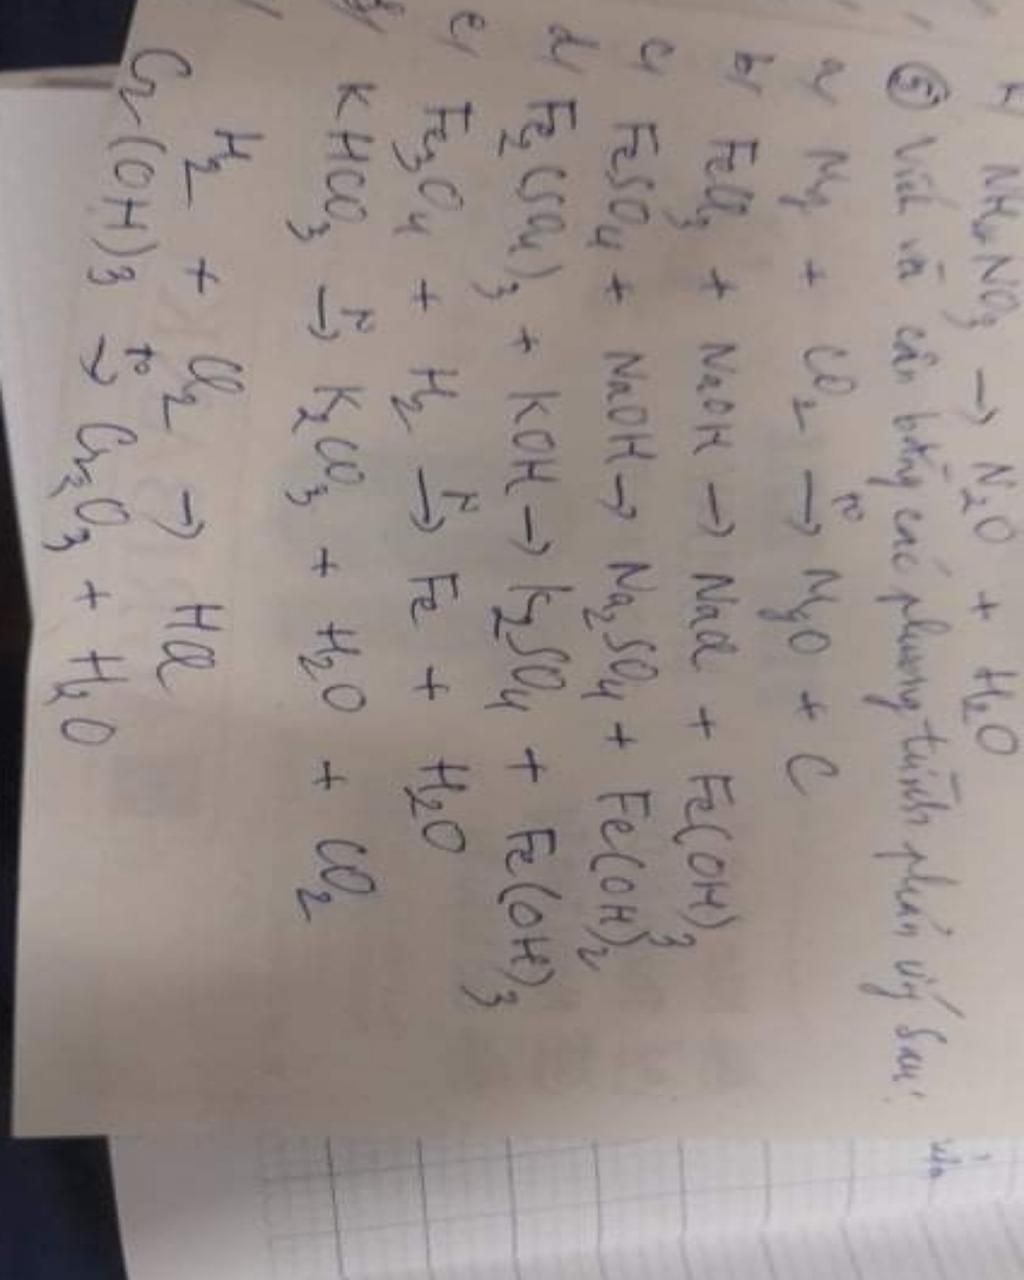 NH₄NO₃ → N₂O + H₂O
⑤ Viết và cân bằng các phương trình phản ứng sau:
a, Mg + CO₂ –t°→ MgO + C
b, FeCl₃ + NaOH → NaCl + Fe(OH)₃
c, FeSO₄ + NaOH → Na₂SO₄ + Fe(OH)₂
d, Fe₂(SO₄)₃ + KOH → K₂SO₄ + Fe(OH)₃
e, Fe₃O₄ + H₂ –t°→ Fe + H₂O
KHCO₃ –t°→ K₂CO₃ + H₂O + CO₂
H₂ + Cl₂ → HCl
Cr(OH)₃ –t°→ Cr₂O₃ + H₂O